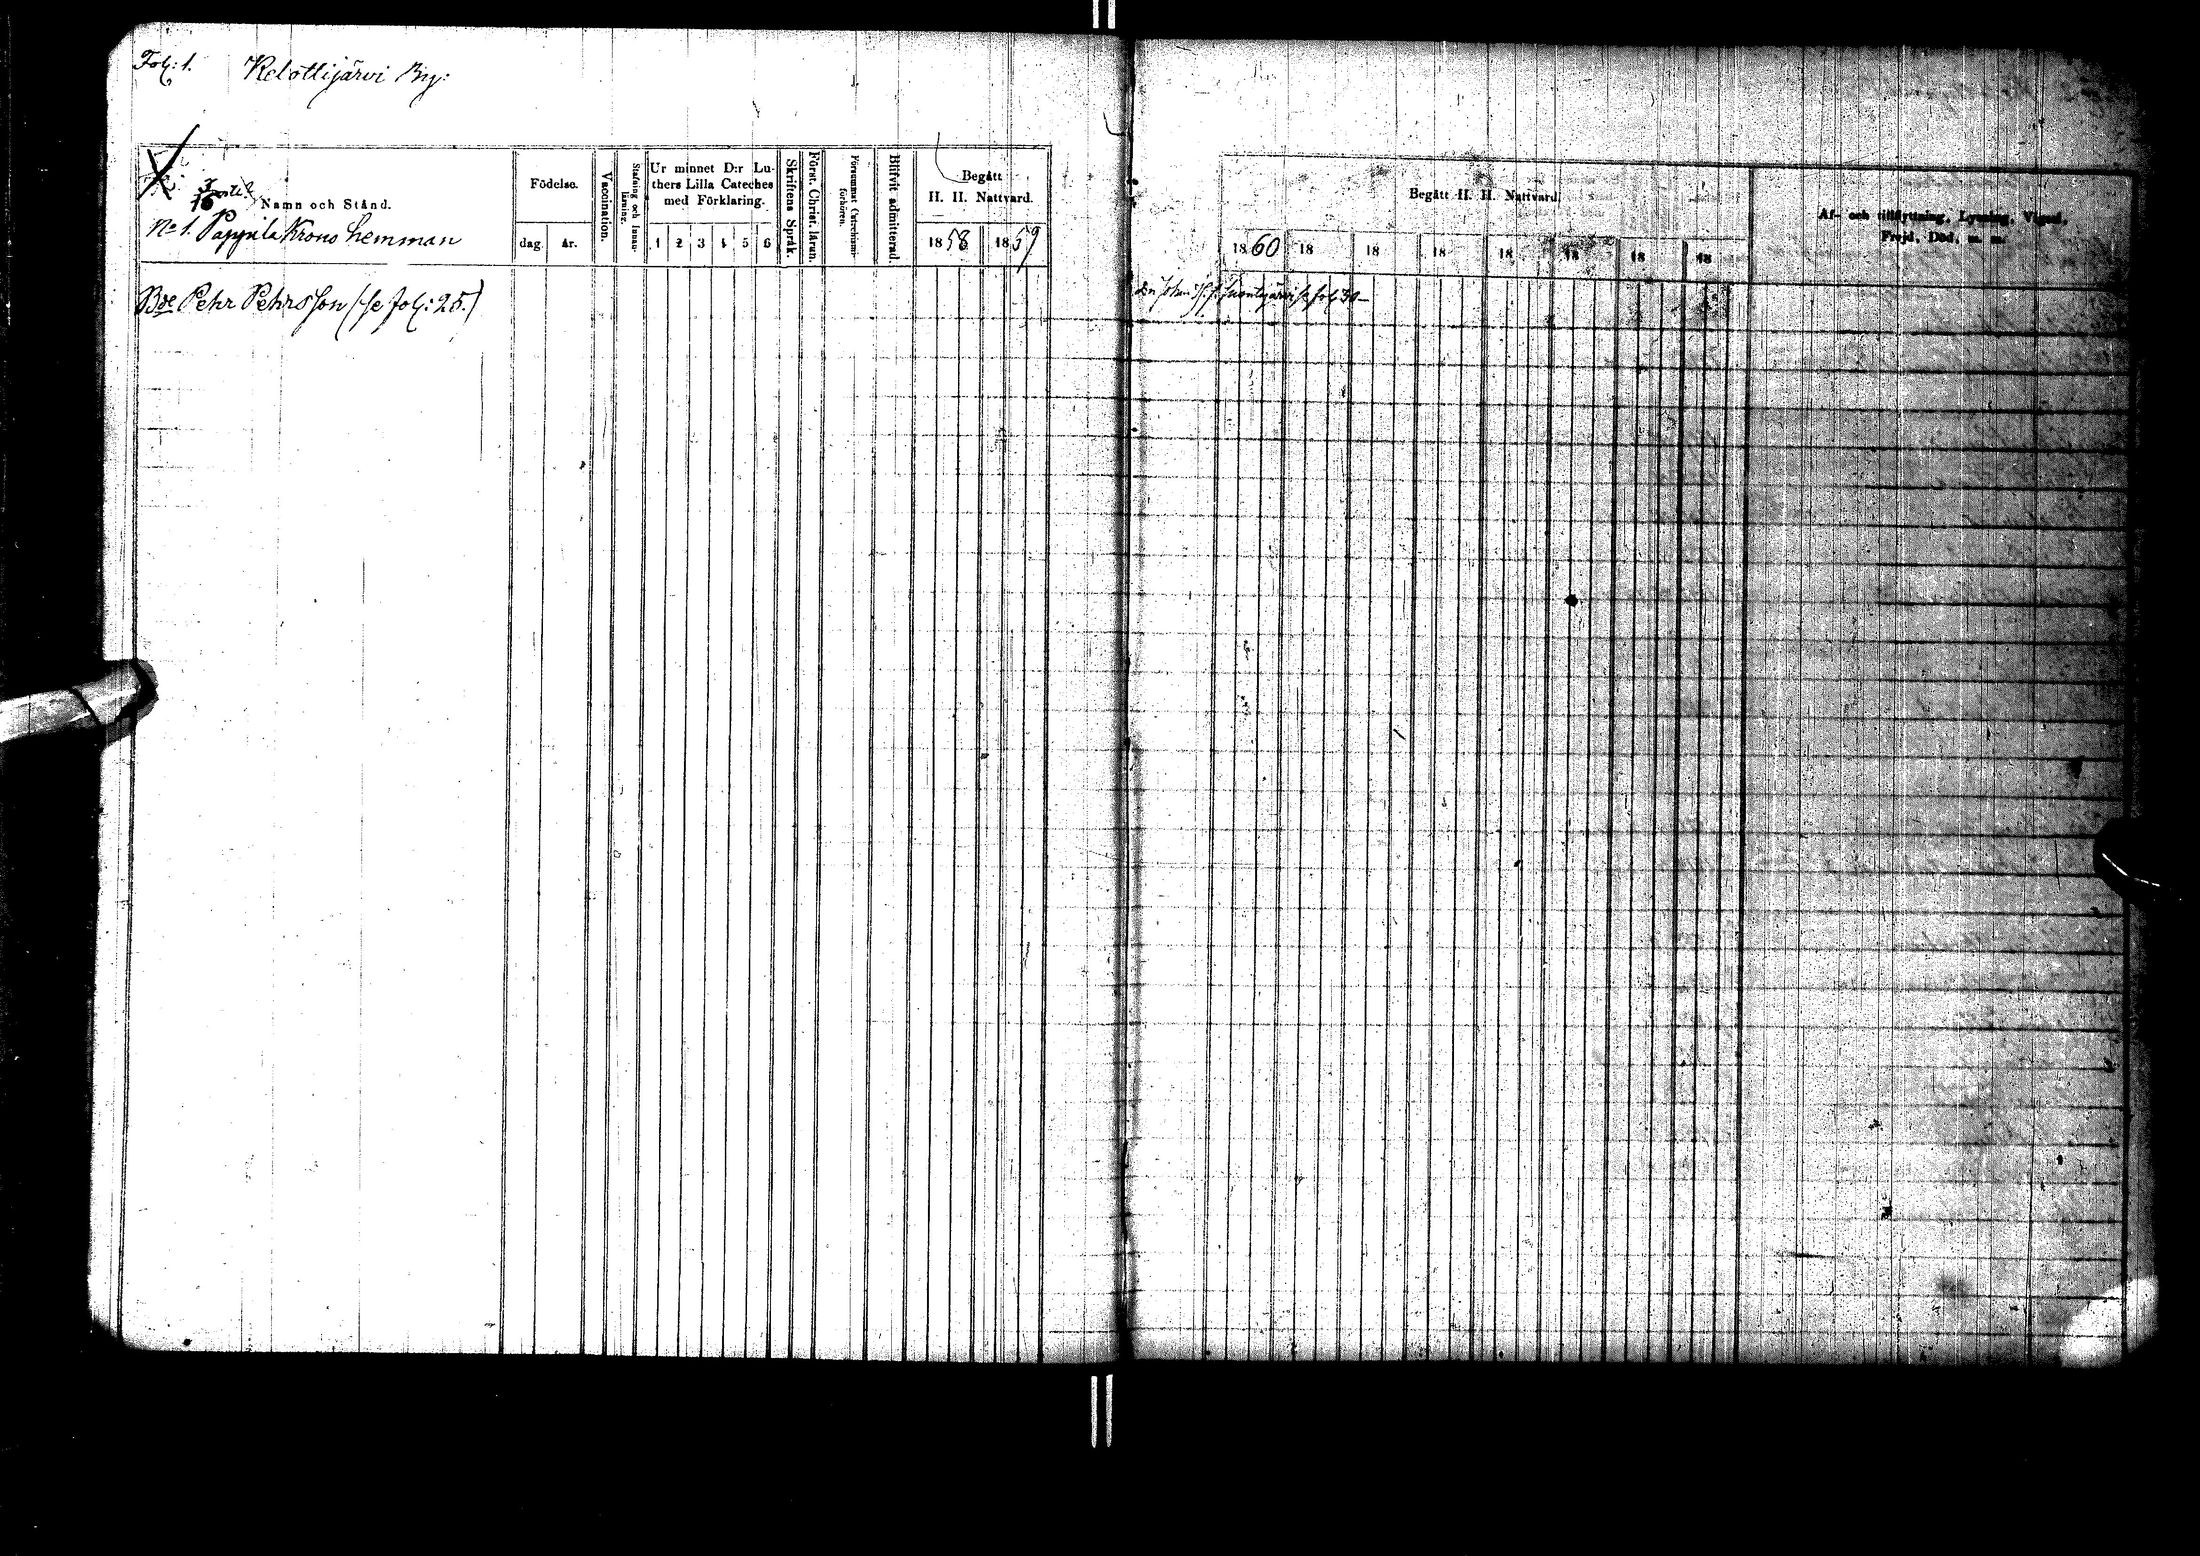 Fol: 1. Kelottijärvi By:
3/16 mtl
Namn och Stånd.
No 1. Pappila Krono Hemman
Födelse.
dag. år.
Vaccination.
Stafning och Innanläsning.
Ur minnet D:r Lu-
thers Lilla Cateches
med Förklaring.
1 2 3 4 5 6
Skriftens Språk.
Först. Christ. läran.
Försummat Catechismi-
förhören.
Blifvit admitterad.
Begått
H. H. Nattvard.
1858 1859
Begått H. H. Nattvard.
1860 18 18 18 18 18 18 18
Af- och tillflyttning, Lysning, Vigsel,
Frejd, Död, m. m.
Bde Pehr Pehrsson (se fol: 25.)
Suontajärvi se fol 30